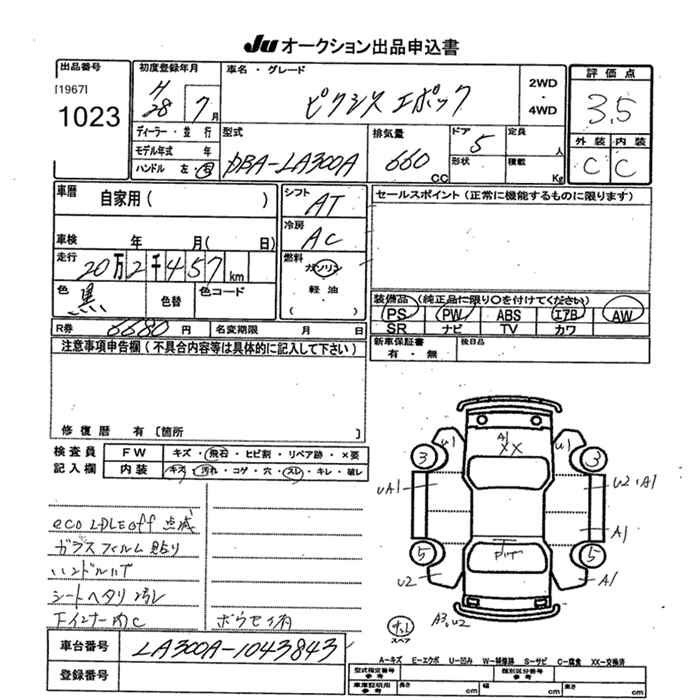 Ju オークション出品申込書
出品番号
[1967]
1023
初度登録年月
H
28 7月
ディーラー・並行
モデル年式 年
ハンドル 左・右
車名・グレード
ピクシス エポック
2WD
・
4WD
評価点
3.5
外装 内装
C C
型式
DBA-LA300A
排気量
660
CC
ドア
5
形状
定員
人
積載
Kg
車歴
自家用( )
車検 年 月( 日)
走行
20万2千457km
色
黒
色替
色コード
シフト
AT
冷房
AC
燃料
ガソリン
軽油
( )
セールスポイント(正常に機能するものに限ります)
装備品(純正品に限り○を付けてください)
PS PW ABS エアB AW
SR ナビ TV カワ
新車保証書
有・無
後日品
R券 6680円 名変期限 月 日
注意事項申告欄(不具合内容等は具体的に記入して下さい)
修復暦 有[箇所 ]
検査員
記入欄
FW キズ・飛石・ヒビ割・リペア跡・×要
内装 キズ・汚れ・コゲ・穴・スレ・キレ・破レ
eco IDLE off 点滅
ガラスフィルム貼り
ハンドルハゲ
シートヘタリ 汚レ
Fインナー内C
ボウセイ有
U1 A1 U1
XX
3 3
UA1 U2・A1
A1
5 5
U2 A1
A3、U2
ナシ
スペア
車台番号 LA300A-1043843
登録番号
A―キズ E―エクボ U―凹み W―補修跡 S―サビ C―腐食 XX―交換済
型式指定番号
参考
類別区分番号
参考
車庫証明用
参考
長さ cm 幅 cm 高さ cm